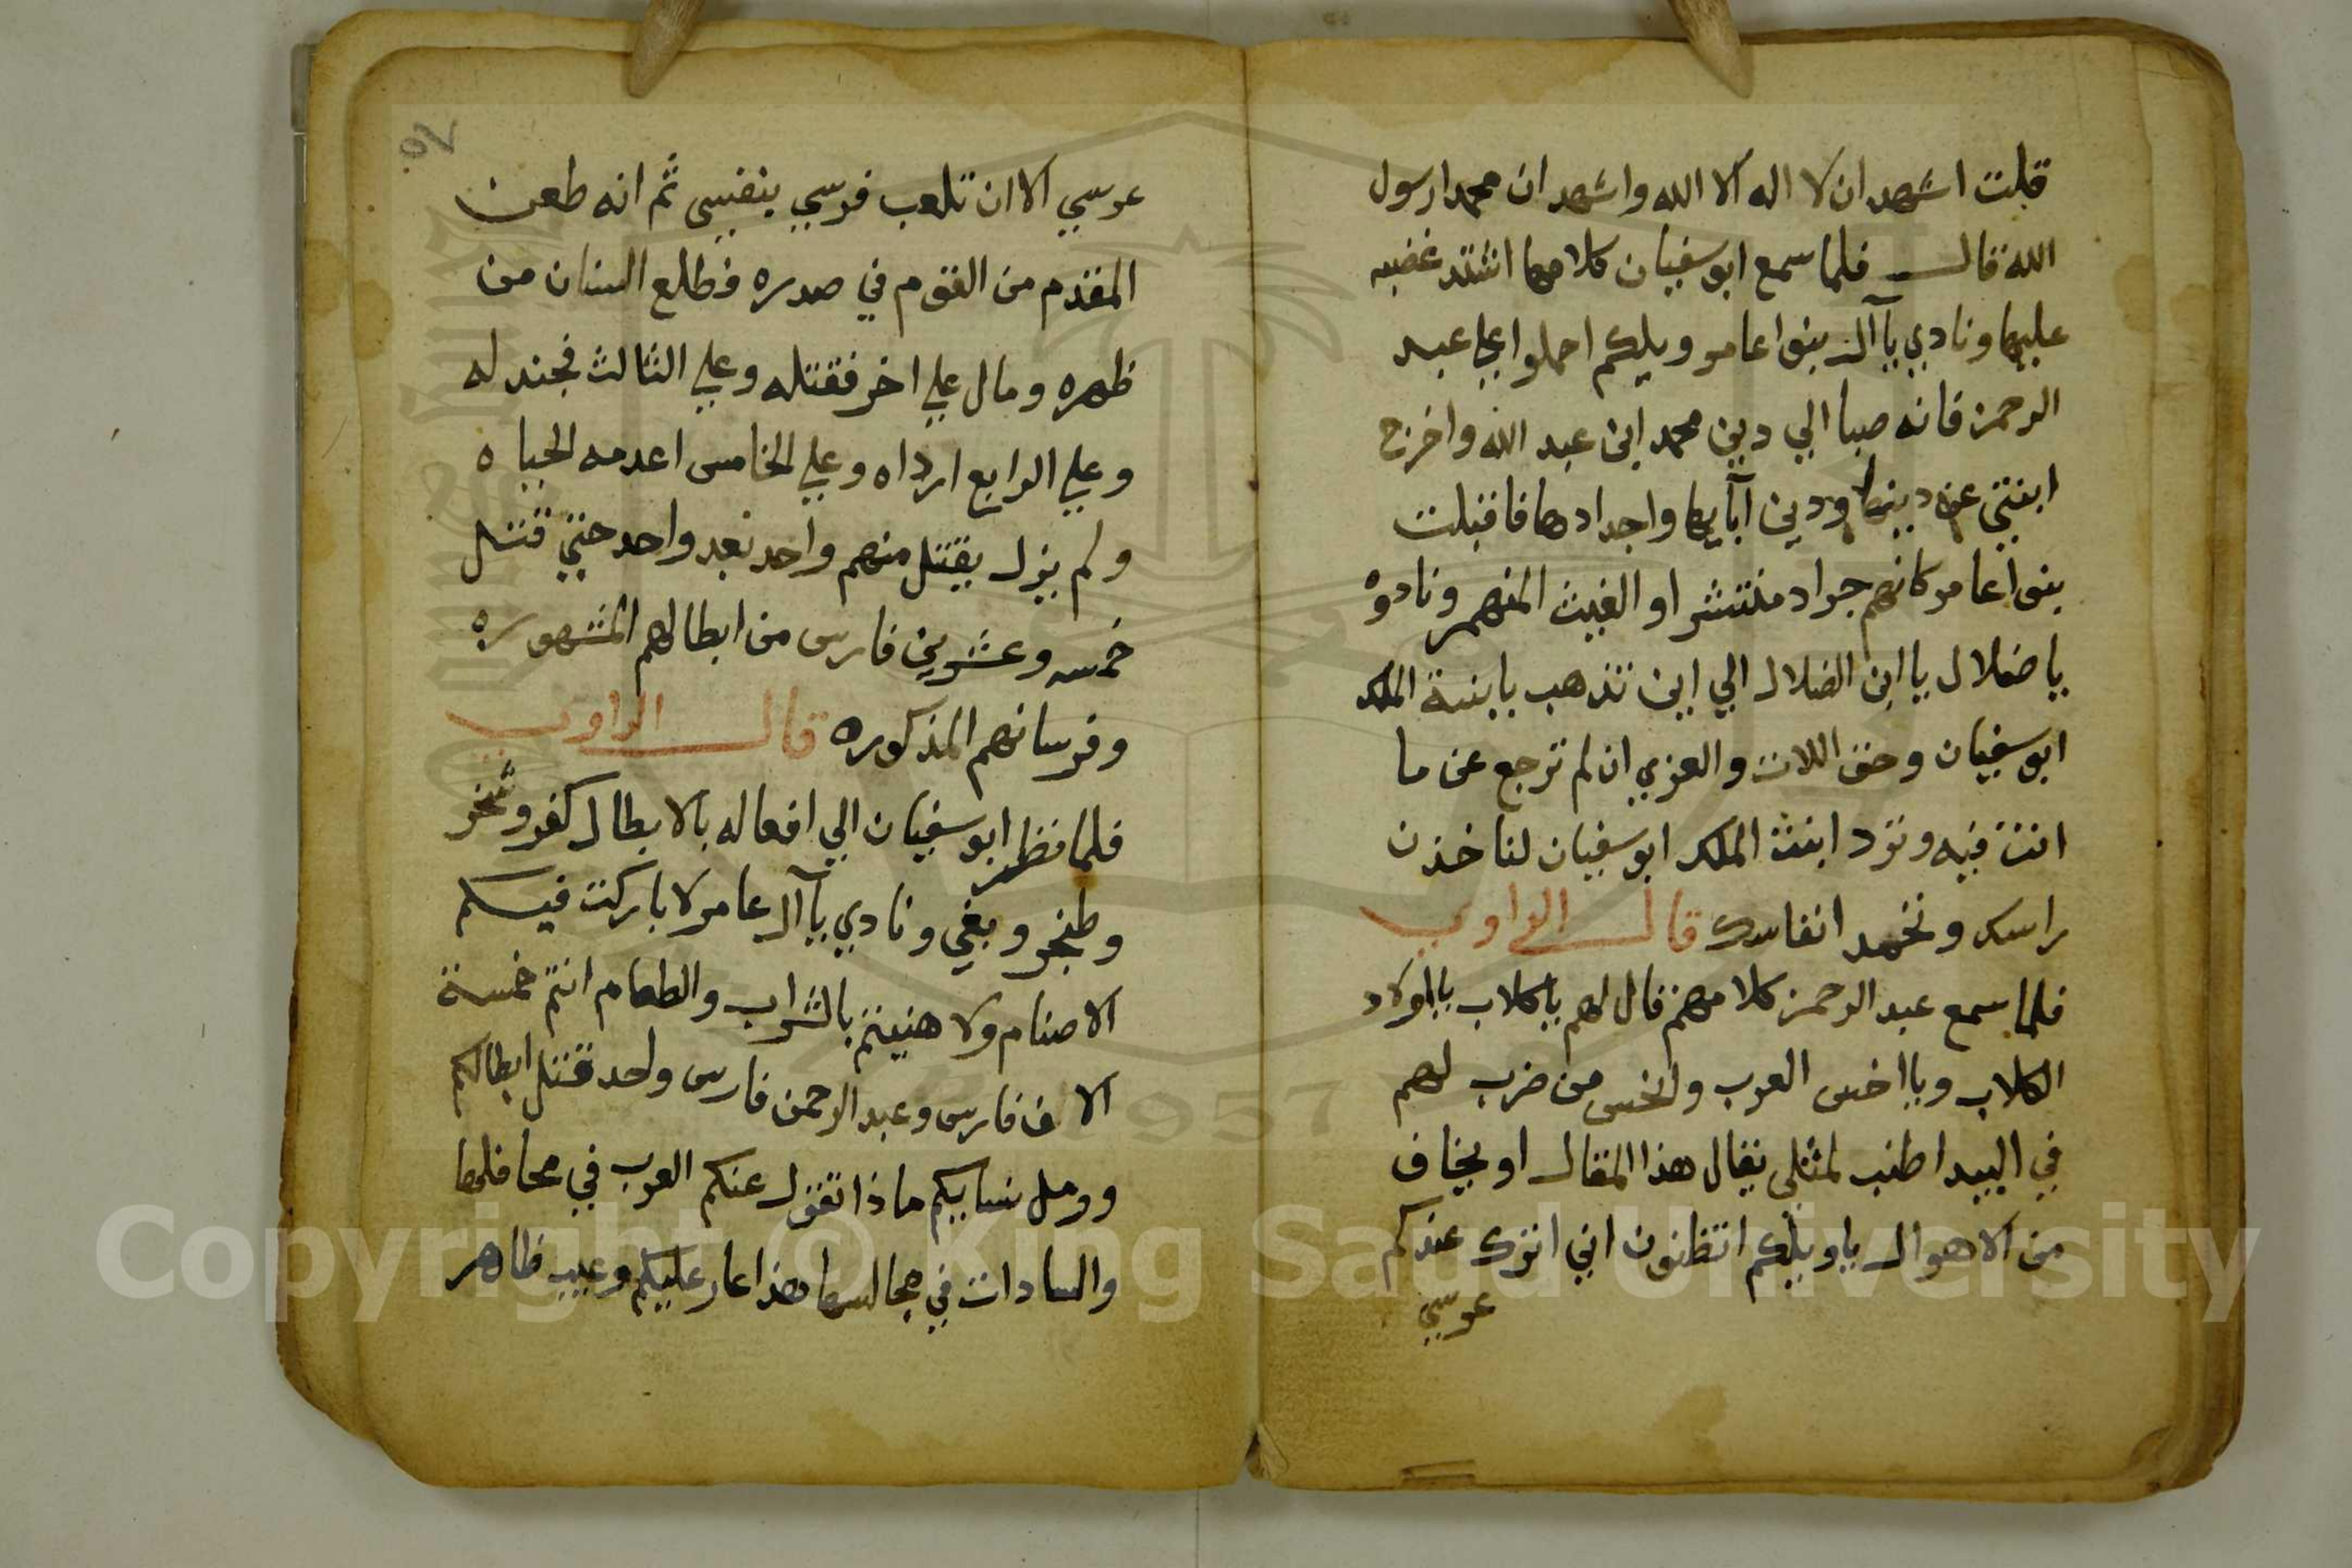 قلت اشهد ان لا اله الا الله واشهد ان محمدا رسول
الله قال فلما سمع ابوسفيان كلامها اشتد غضبه
عليها ونادي يا آل بنوا عامر ويلكم احملوا علي عبد
الرحمن فانه صبا الي دين محمد ابن عبد الله واخرج
ابنتي عن دينها ودين آبايها واجدادها فاقبلت
بنوا عامر كانهم جراد منتشر او الغيث المنهمر ونادوه
يا ضلال يا ابن الضلال الي اين تذهب بابنة الملك
ابوسفيان وحق اللات والعزي ان لم ترجع عن ما
انت فيه وترد ابنت الملك ابوسفيان لناخذن
راسك ونخمد انفاسك قال الراوي
فلما سمع عبد الرحمن كلامهم قال لهم يا كلاب يا اولاد
الكلاب ويا اخس العرب واخس من ضرب لهم
في البيدا طنب لمثلي يقال هذا المقال او يخاف
من الاهوال يا ويلكم اتظنون اني اترك عندكم
عرسي
عرسي الا ان تلعب فرسي بنفسي ثم انه طعن
المقدم من القوم في صدره فطلع السنان من
ظهره ومال علي اخر فقتله وعلي الثالث فجندله
وعلي الرابع ارداه وعلي الخامس اعدمه الحياه
ولم يزل يقتل منهم واحد بعد واحد حتي قتل
خمسه وعشرين فارس من ابطالهم المشهوره
وفرسانهم المذكوره قال الراوي
فلما نظر ابوسفيان الي افعاله بالابطال كفر وشخر
وطنجر وبغي ونادي يا آل عامر لا باركت فيكم
الاصنام ولا هنيتم بالشراب والطعام انتم خمسة
الاف فارس وعبد الرحمن فارس واحد قتل ابطالكم
وومل نسايكم ماذا تقول عنكم العرب في محافلها
والسادات في مجالسها هذا عار عليكم وعيب ظاهر
Copyright © King Saud University
1957